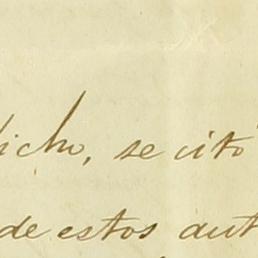 dicho, se citó
de estos aut